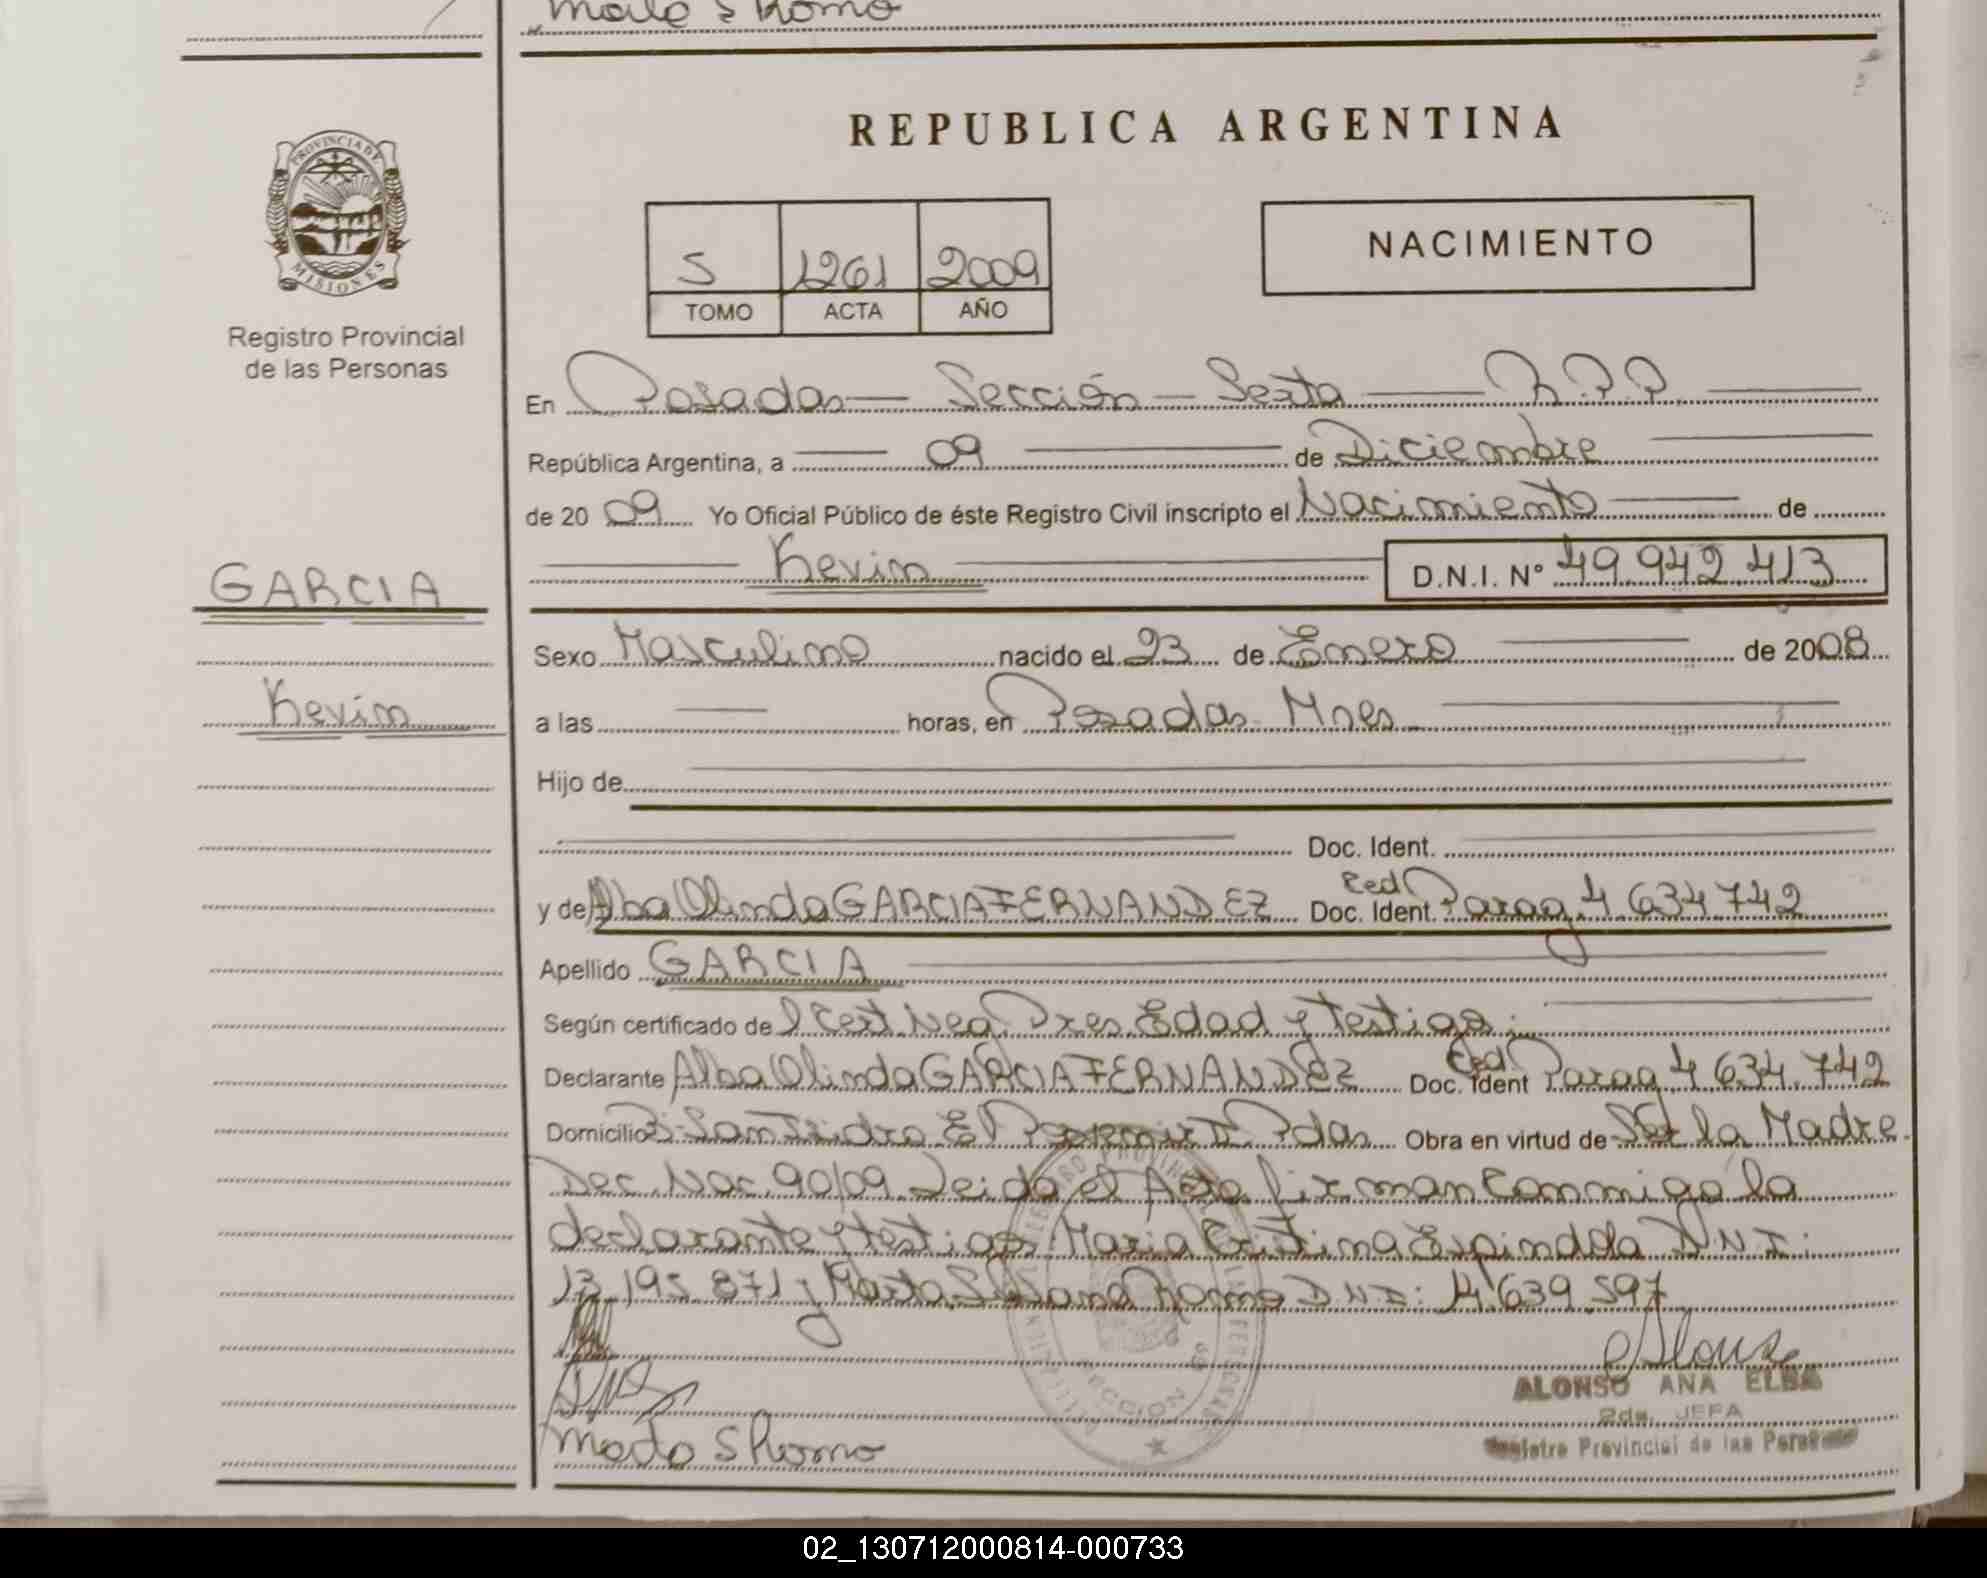 S Romo
REPUBLICA ARGENTINA
PROVINCIA DE
MISIONES
Registro Provincial
de las Personas
S 1261 2009
TOMO ACTA AÑO
NACIMIENTO
En Posadas Sección Sexta R.P.P.
República Argentina, a 09 de Diciembre
de 2009 Yo Oficial Público de éste Registro Civil inscripto el Nacimiento de
Kevin D.N.I. N° 49.942.413
GARCIA
Sexo Masculino nacido el 23 de Enero de 2008
Kevin
a las horas, en Posadas Mnes
Hijo de
Doc. Ident.
y de Alba Olinda GARCIA FERNANDEZ Doc. Ident. Ced Parag 4.634.742
Apellido GARCIA
Según certificado de 1 Cert. Neg. Pres. Edad y Testigo.
Declarante Alba Olinda GARCIA FERNANDEZ Doc. Ident Ced. Parag 4.634.742
Domicilio B: San Isidro El Pdas Obra en virtud de Ser la Madre
Dec. Nac. 90/09 Leida el Acta firman conmigo la
declarante y testigos Maria Cristina Espindola DNI:
13.195.871 y Marta Susana Romo DNI: 14.639.597
Alonso
ALONSO ANA ELBA
2da. JEFA
Registro Provincial de las Personas
S Romo
SECCION
02_130712000814-000733